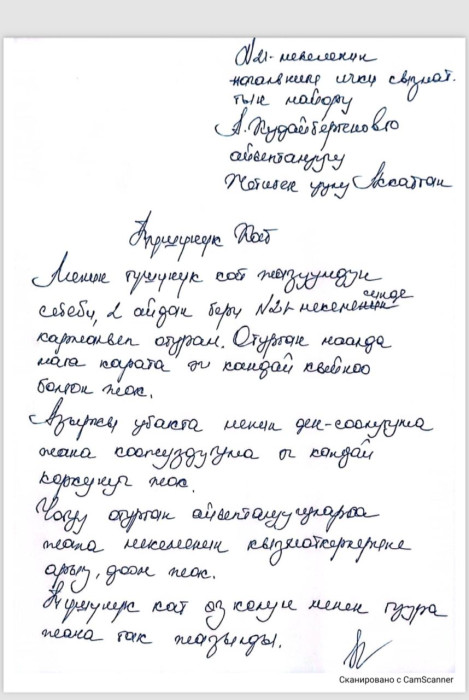 №21- мекеменин
начальниги ички кызмат.
тык майору
А. Кудайбергеновго
айыпталуучу
уулу
Түшүнүк Кат
Менин түшүнүк кат жазуумдун
себеби, 2 айдан бери №21 мекемесинде
кармалып отурам. Отурган маалда
мага карата эч кандай кысымо
болгон жок.
Азыркы убакта менин ден-соолугума
жана коопсуздугума эч кандай
коркунуч жок.
Чогу отурган айыпталуучуларга
жана мекеменин кызматкерлерине
арыз, доом жок.
Түшүнүк кат өз колум менен туура
жана так жазылды.
Сканировано с CamScanner